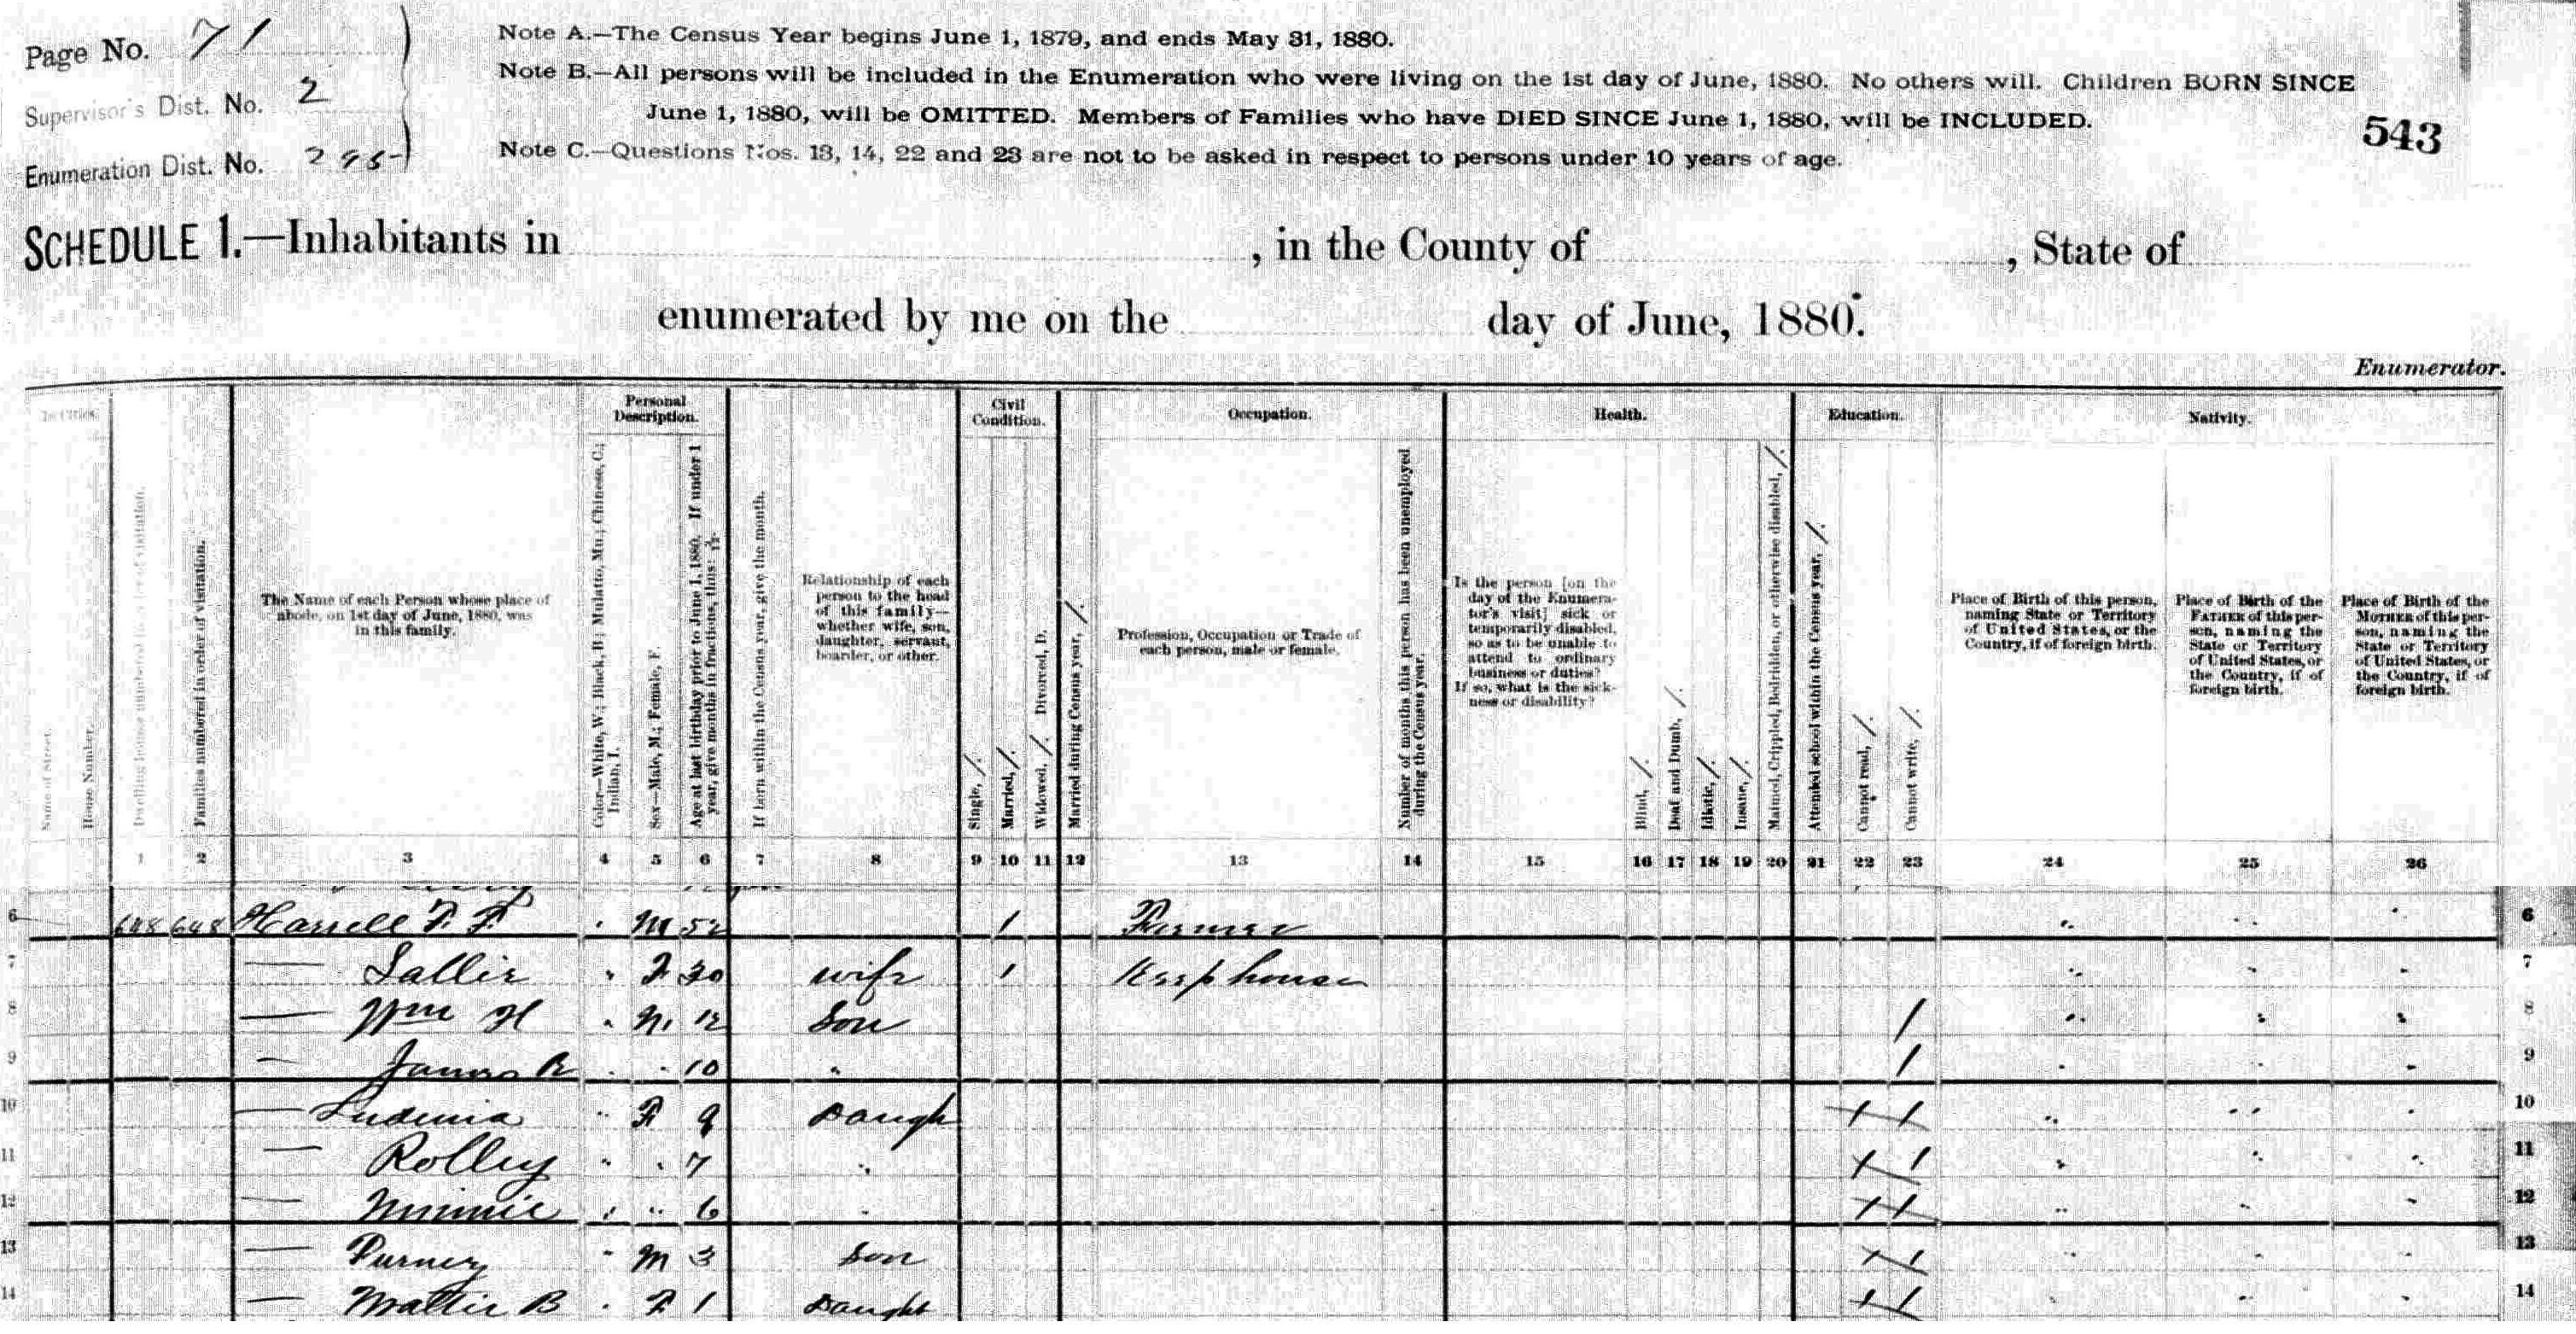 Page No. 71
Supervisor's Dist. No. 2
Enumeration Dist. No. 295
Note A.—The Census Year begins June 1, 1879, and ends May 31, 1880.
Note B.—All persons will be included in the Enumeration who were living on the 1st day of June, 1880. No others will. Children BORN SINCE
June 1, 1880, will be OMITTED. Members of Families who have DIED SINCE June 1, 1880, will be INCLUDED.
Note C.—Questions Nos. 13, 14, 22 and 23 are not to be asked in respect to persons under 10 years of age.
543
SCHEDULE 1.—Inhabitants in , in the County of , State of
enumerated by me on the day of June, 1880.
Enumerator.
In Cities.
Name of Street.
House Number.
Dwelling houses numbered in order of visitation.
Families numbered in order of visitation.
The Name of each Person whose place of
abode, on 1st day of June, 1880, was
in this family.
Personal
Description.
Color—White, W.; Black, B.; Mulatto, Mu.; Chinese, C.;
Indian, I.
Sex—Male, M.; Female, F.
Age at last birthday prior to June 1, 1880. If under 1
year, give months in fractions, thus: 3/12
If born within the Census year, give the month.
Relationship of each
person to the head
of this family—
whether wife, son,
daughter, servant,
boarder, or other.
Civil
Condition.
Single, /.
Married, /.
Widowed, /. Divorced, D.
Married during Census year, /.
Occupation.
Profession, Occupation or Trade of
each person, male or female.
Number of months this person has been unemployed
during the Census year.
Health.
Is the person [on the
day of the Enumera-
tor's visit] sick or
temporarily disabled,
so as to be unable to
attend to ordinary
business or duties?
If so, what is the sick-
ness or disability?
Blind, /.
Deaf and Dumb, /.
Idiotic, /.
Insane, /.
Maimed, Crippled, Bedridden, or otherwise disabled, /.
Education.
Attended school within the Census year, /.
Cannot read, /.
Cannot write, /.
Nativity.
Place of Birth of this person,
naming State or Territory
of United States, or the
Country, if of foreign birth.
Place of Birth of the
FATHER of this per-
son, naming the
State or Territory
of United States, or
the Country, if of
foreign birth.
Place of Birth of the
MOTHER of this per-
son, naming the
State or Territory
of United States, or
the Country, if of
foreign birth.
1 2 3 4 5 6 7 8 9 10 11 12 13 14 15 16 17 18 19 20 21 22 23 24 25 26
6 648 648 Harrell F. F. " M 52 / Farmer 6
7 — Sallie " F 30 wife / Keep house 7
8 — Wm H " M 12 Son / 8
9 — James R " " 10 " / 9
10 — Ludenia " F 9 Daugh / / 10
11 — Rolley " " 7 " / / 11
12 — Minnie " " 6 " / / 12
13 — Purney " M 3 Son / / 13
14 — Mattie B " F 1 Daught / / 14